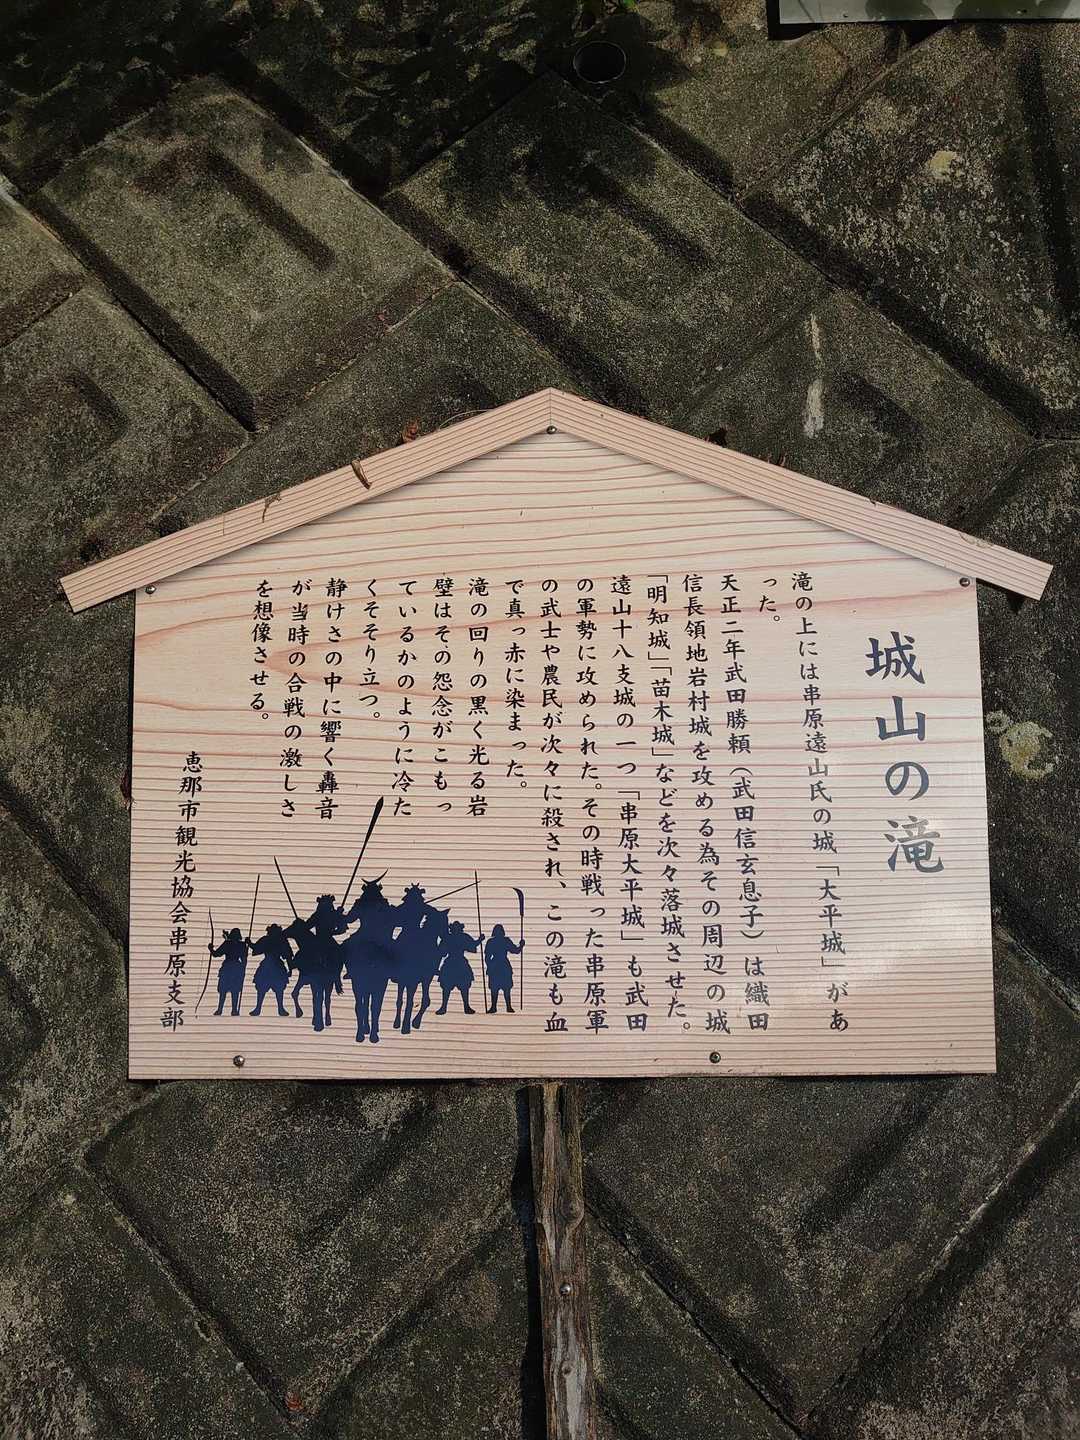 城山の滝
滝の上には串原遠山氏の城「大平城」があ
った。
天正二年武田勝頼（武田信玄息子）は織田
信長領地岩村城を攻める為その周辺の城
「明知城」「苗木城」などを次々落城させた。
遠山十八支城の一つ「串原大平城」も武田
の軍勢に攻められた。その時戦った串原軍
の武士や農民が次々に殺され、この滝も血
で真っ赤に染まった。
滝の回りの黒く光る岩
壁はその怨念がこもっ
ているかのように冷た
くそそり立つ。
静けさの中に響く轟音
が当時の合戦の激しさ
を想像させる。
恵那市観光協会串原支部